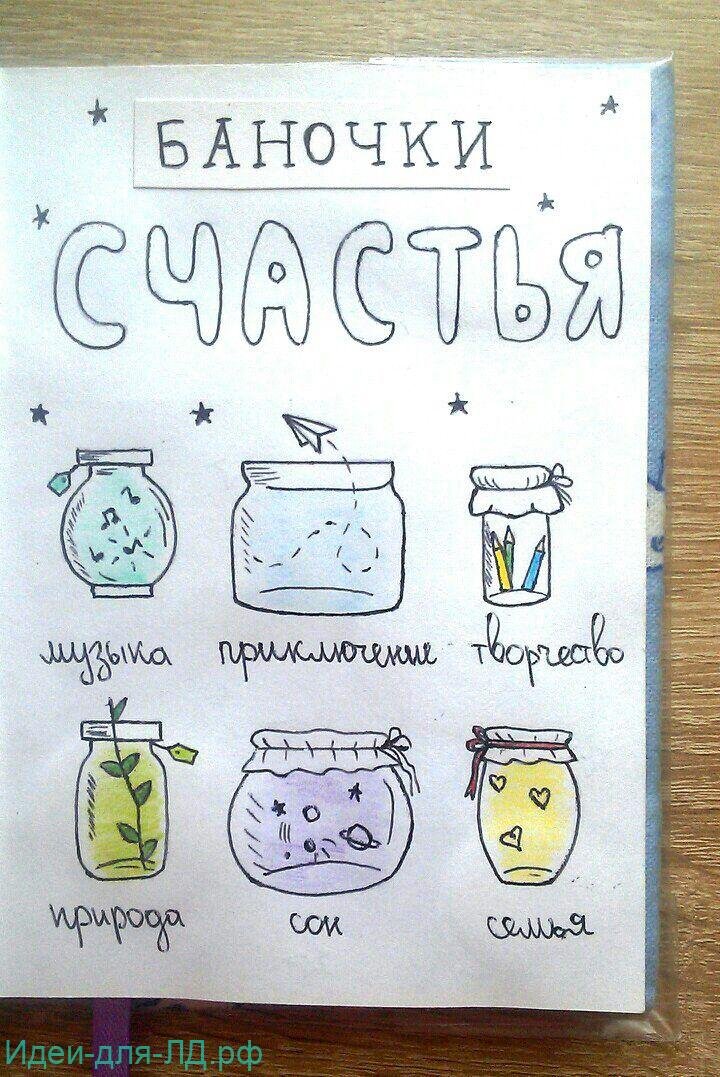 БАНОЧКИ
СЧАСТЬЯ
музыка приключение творчество
природа сон семья
Идеи-для-ЛД.рф